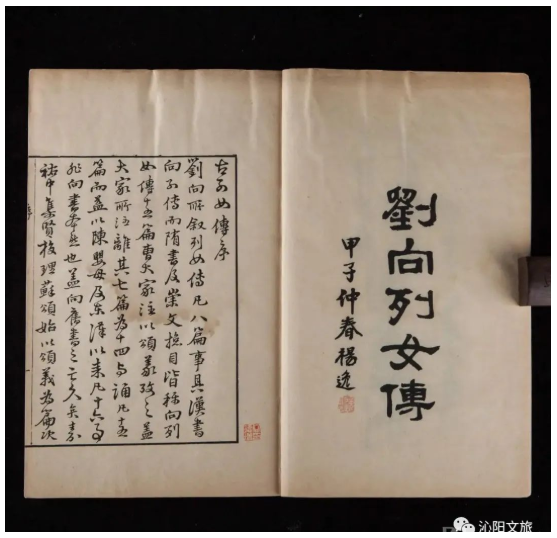 劉向列女傳
甲子仲春楊逸
古列女傳序
劉向所叙列女傳凡八篇事具漢書
向列傳而隋書及崇文總目皆稱向列
女傳十五篇曹大家注以頌義考之蓋
大家所注離其七篇為十四与頌凡十五
篇而益以陳嬰母及東漢以来凡十六事
非向書本然也蓋向舊書之亡久矣嘉
祐中集賢校理蘇頌始以頌義為篇次
沁阳文旅